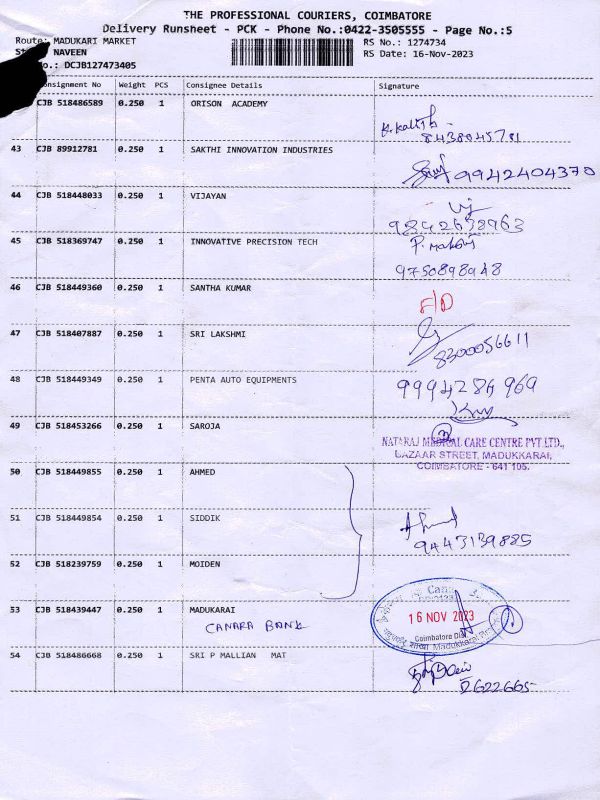 THE PROFESSIONAL COURIERS, COIMBATORE
Delivery Runsheet - PCK - Phone No.:0422-3505555 - Page No.:5
Route: MADUKARI MARKET
RS No.: 1274734
NAVEEN
RS Date: 16-Nov-2023
No.: DCJB127473405
Consignment No Weight PCS Consignee Details Signature
CJB 518486589 0.250 1 ORISON ACADEMY
8438045781
43 CJB 89912781 0.250 1 SAKTHI INNOVATION INDUSTRIES
9942404370
44 CJB 518448033 0.250 1 VIJAYAN
Vij
9842698963
45 CJB 518369747 0.250 1 INNOVATIVE PRECISION TECH
9750898948
46 CJB 518449360 0.250 1 SANTHA KUMAR
F/D
47 CJB 518407887 0.250 1 SRI LAKSHMI
8300056611
48 CJB 518449349 0.250 1 PENTA AUTO EQUIPMENTS
9994284969
49 CJB 518453266 0.250 1 SAROJA
NATARAJ MEDICAL CARE CENTRE PVT LTD.,
BAZAAR STREET, MADUKKARAI,
COIMBATORE - 641 105.
50 CJB 518449855 0.250 1 AHMED
51 CJB 518449854 0.250 1 SIDDIK
Ahmed
9443139885
52 CJB 518239759 0.250 1 MOIDEN
53 CJB 518439447 0.250 1 MADUKARAI
CANARA BANK
16 NOV 2023
Coimbatore Dist
Madukkarai
54 CJB 518486668 0.250 1 SRI P MALLIAN MAT
2622665